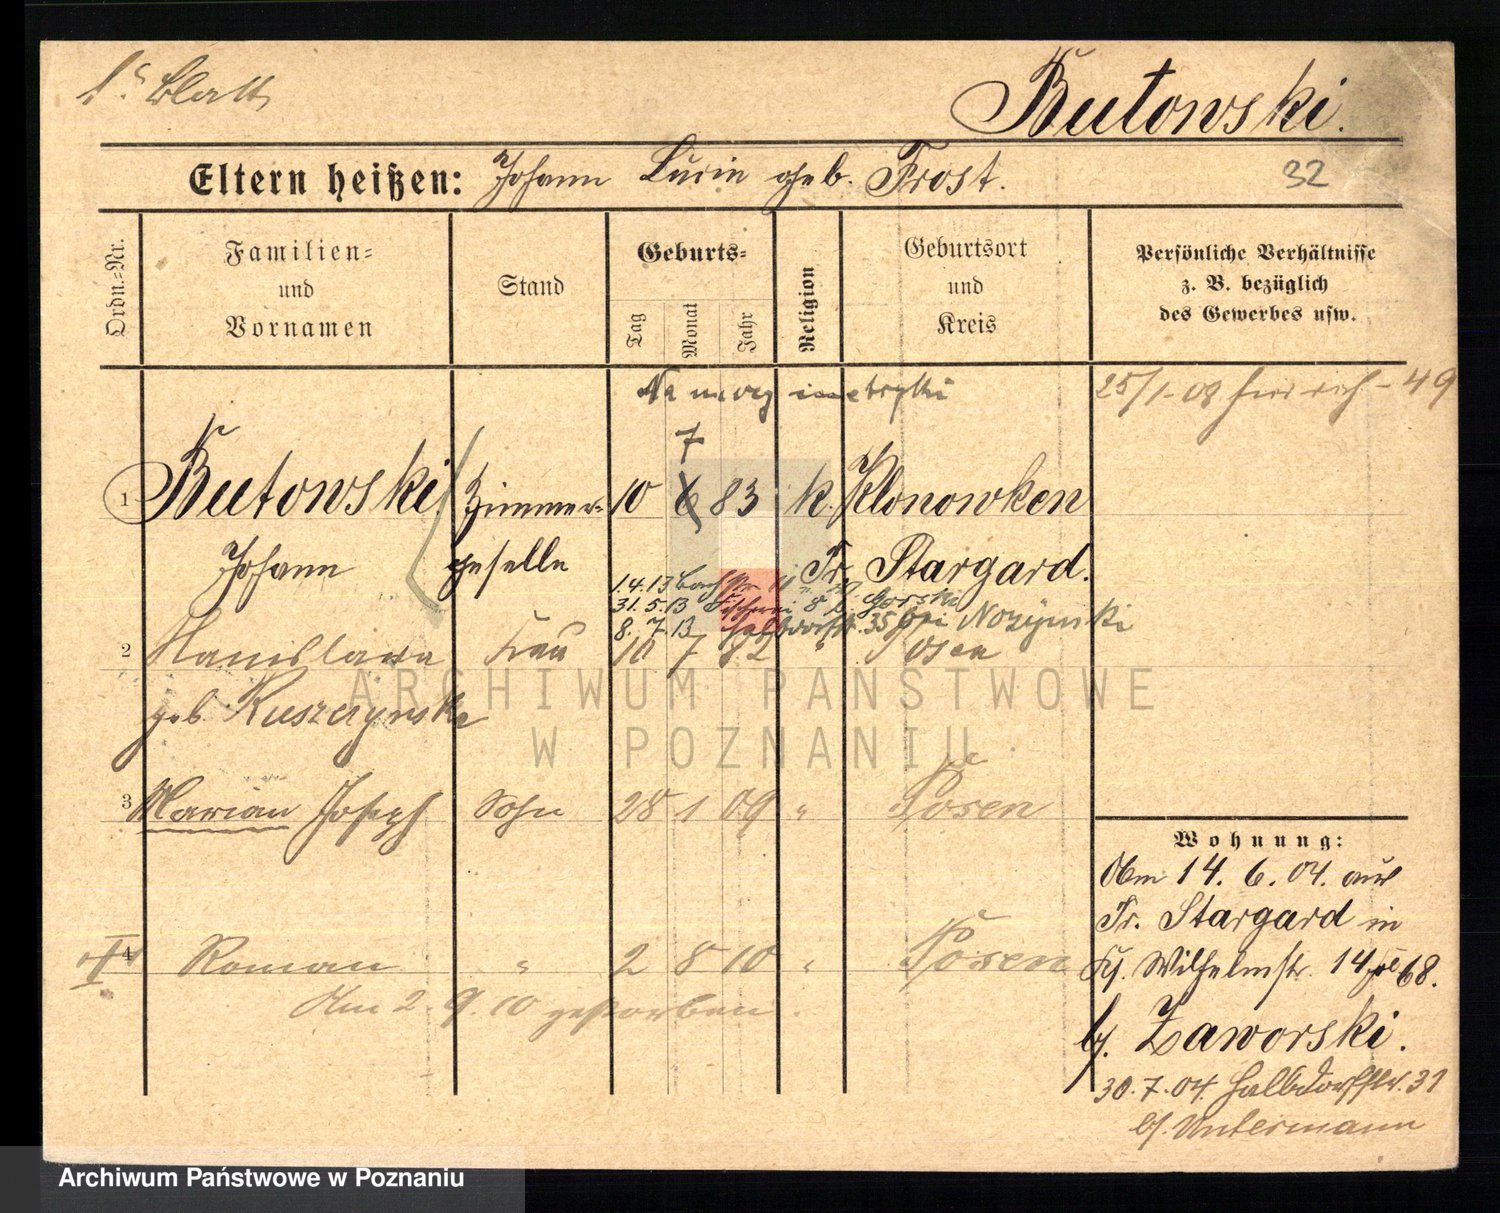 1. Blatt
Butowski.
Eltern heißen: Johann Lucin geb. Frost.
32
Ordn.-Nr.
Familien- und Vornamen
Stand
Geburts-
Tag
Monat
Jahr
Religion
Geburtsort und Kreis
Persönliche Verhältnisse z. B. bezüglich des Gewerbes usw.
Na mocy metryki
25/1-09
49
7
1 Butowski Zimmer- 10 6 83 k. Klonowken
Johann geselle Pr. Stargard.
14.13
31.5.13 Fischerei 8 b. Gorski
8. 7 13 Halbdorfstr. 35 bei
2 Stanislawa Frau 10 7 82 " Posen
geb. Ruszczynska
3 Marian Joseph Sohn 28 1 09 " Posen
4 Roman " 2 8 10 " Posen
Am 2. 9. 10 gestorben.
Wohnung:
Am 14. 6. 04. aus
Pr. Stargard in
Wilhelmstr. 14 68.
b. Zaworski.
30.7.04. Halbdorfstr. 31
b. Untermann
ARCHIWUM PAŃSTWOWE
W POZNANIU
Archiwum Państwowe w Poznaniu